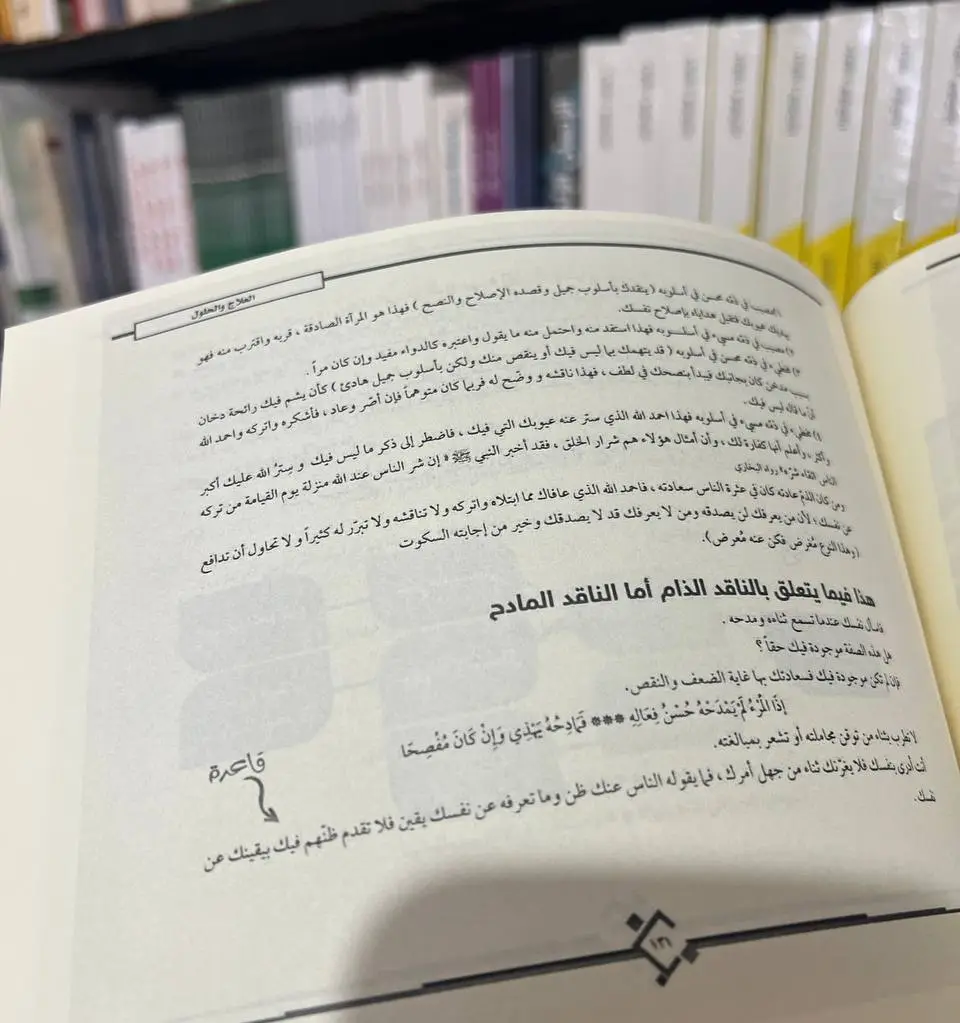 العلاج والحلول
١) مصيب في ذمّه محسن في أسلوبه ( ينقدك بأسلوب جميل وقصده الإصلاح والنصح ) فهذا هو المرآة الصادقة ، قربه واقترب منه فهو
يهديك عيوبك فتقبل هداياه بإصلاح نفسك.
٢) مصيب في ذمّه مسيء في أسلوبه فهذا استفد منه واحتمل منه ما يقول واعتبره كالدواء مفيد وإن كان مراً .
٣) مخطيء في ذمّه محسن في أسلوبه ( قد يتهمك بما ليس فيك أو ينقص منك ولكن بأسلوب جميل هادئ ) كأن يشم فيك رائحة دخان
بسبب مدخن كان بجانبك فيبدأ بنصحك في لطف ، فهذا ناقشه و وضّح له فربما كان متوهماً فإن أصّر وعاد ، فأشكره واتركه واحمد الله
أنّ ما قاله ليس فيك.
٤) مخطيء في ذمّه مسيء في أسلوبه فهذا احمد الله الذي ستر عنه عيوبك التي فيك ، فاضطر إلى ذكر ما ليس فيك و سِترُ الله عليك أكبر
وأكثر ، وأعلم أنها كفارة لك ، وأن أمثال هؤلاء هم شرار الخلق ، فقد أخبر النبي ﷺ « إن شر الناس عند الله منزلة يوم القيامة من تركه
الناس اتقاء شرّه » رواه البخاري
ومن كان الذمّ عادته كان في عثرة الناس سعادته ، فاحمد الله الذي عافاك مما ابتلاه واتركه ولا تناقشه ولا تبرّر له كثيراً و لا تحاول أن تدافع
عن نفسك ؛ لأن من يعرفك لن يصدقه ومن لا يعرفك قد لا يصدقك وخير من إجابته السكوت
(وهذا النوع مُغرض فكن عنه مُعرض).
هذا فيما يتعلق بالناقد الذام أما الناقد المادح
فاسأل نفسك عندما تسمع ثناءه ومدحه .
هل هذه الصفة موجودة فيك حقاً ؟
فإن لم تكن موجودة فيك فسعادتك بها غاية الضعف والنقص.
إِذَا الْمَرْءُ لَمْ يَمْدَحْهُ حُسْنُ فِعَالِهِ *** فَمَادِحُهُ يَهْذِي وَإِنْ كَانَ مُفْصِحًا
لا تطرب بثناء من توقن مجاملته أو تشعر بمبالغته.
قاعدة
أنت أدرى بنفسك فلا يغرّنك ثناء من جهل أمرك ، فما يقوله الناس عنك ظن وما تعرفه عن نفسك يقين فلا تقدم ظنّهم فيك بيقينك عن
نفسك.
١٣١